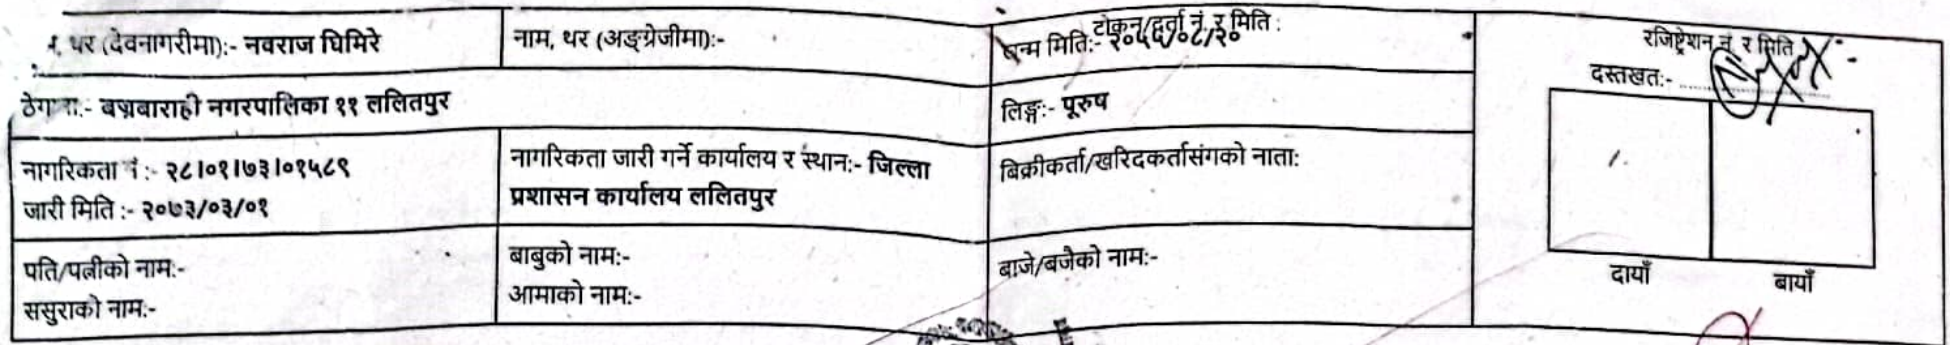 थर (देवनागरीमा):- नवराज घिमिरे
नाम, थर (अङ्ग्रेजीमा):-
टोकन/दर्ता नं र मिति :
जन्म मिति:- २०५६/०८/२०
रजिष्ट्रेशन नं. र मिति :-
दस्तखत:-
ठेगाना:- बज्रबाराही नगरपालिका ११ ललितपुर
लिङ्ग:- पूरुष
नागरिकता नं :- २८।०१।७३।०१५८९
जारी मिति :- २०७३/०३/०१
नागरिकता जारी गर्ने कार्यालय र स्थान:- जिल्ला
प्रशासन कार्यालय ललितपुर
बिक्रीकर्ता/खरिदकर्तासंगको नाता:
पति/पत्नीको नाम:-
ससुराको नाम:-
बाबुको नाम:-
आमाको नाम:-
बाजे/बजैको नाम:-
दायाँ
बायाँ